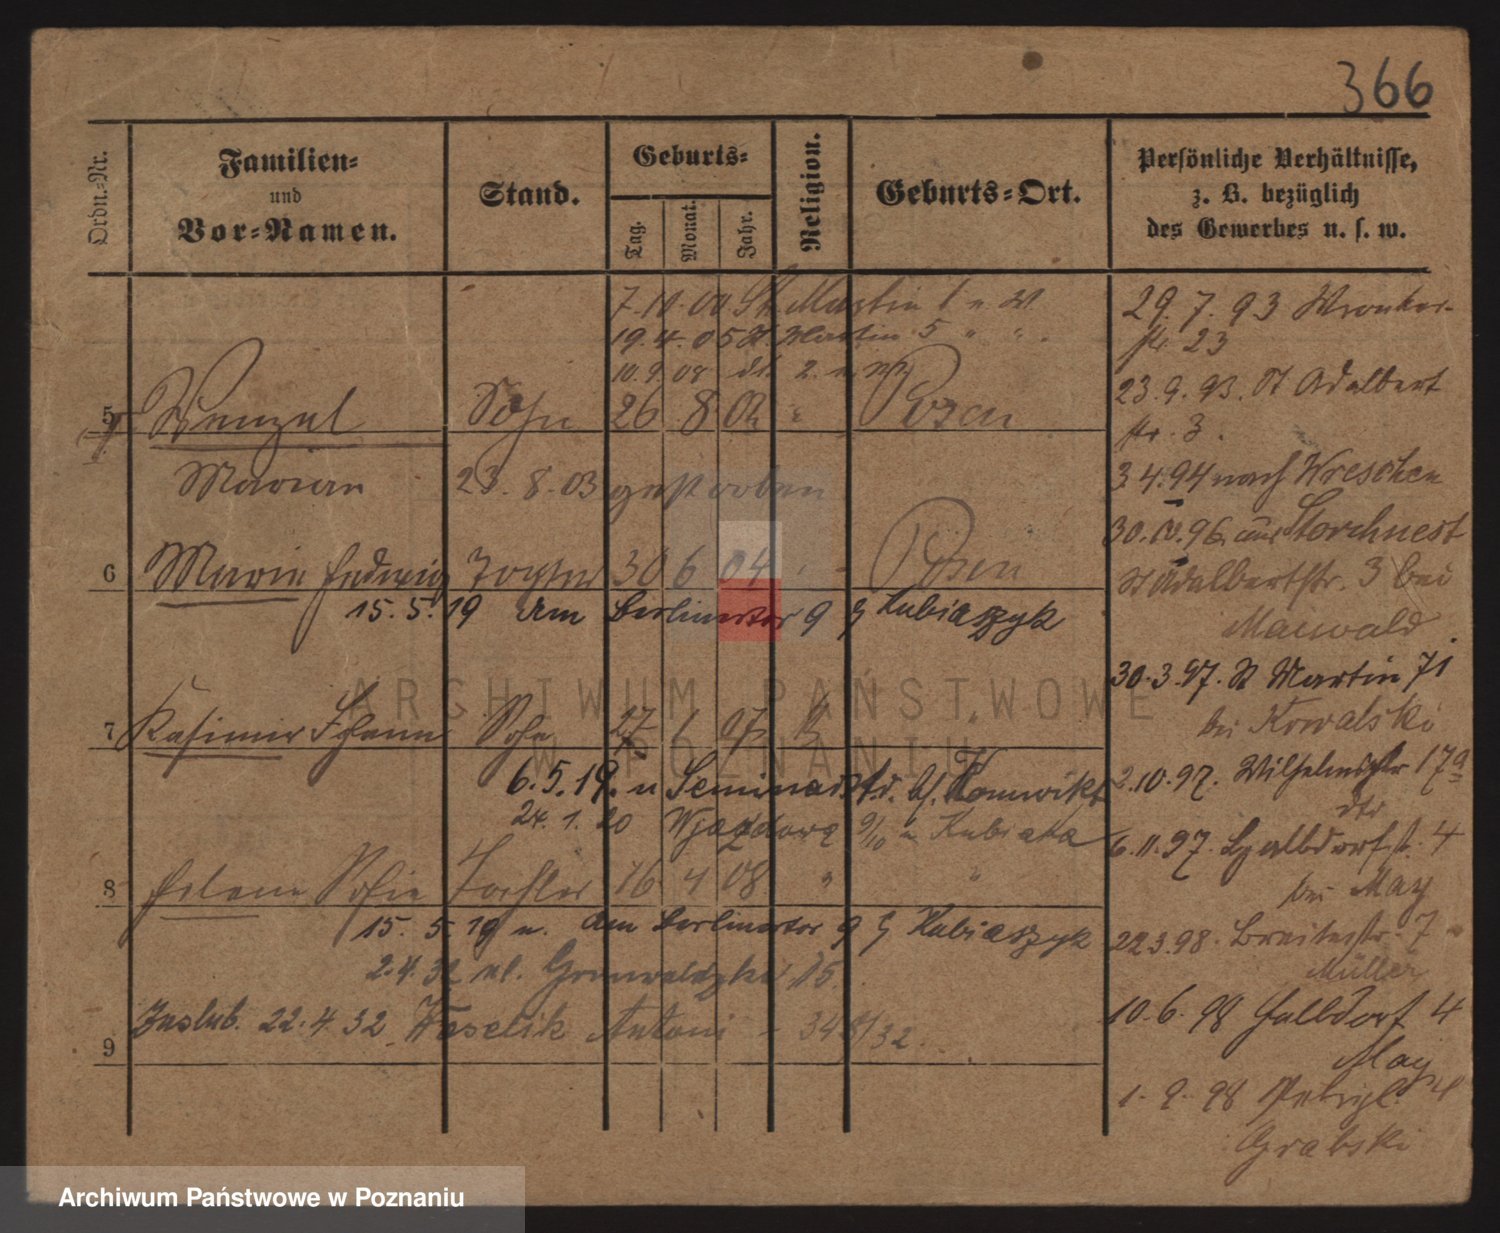 366
Ordn.-Nr.
Familien-
und
Vor-Namen.
Stand.
Geburts-
Tag.
Monat.
Jahr.
Religion.
Geburts-Ort.
Persönliche Verhältnisse,
z. B. bezüglich
des Gewerbes u. s. w.
7.10.00 St. Martin
19.4.05 St. Martin 5 " "
10.9.08
5 Wenzel Sohn 26 8 02 " Posen
Marian 23.8.03 gestorben
6 Marie Hedwig Tochter 30 6 04 Posen
15.5.19 Am Berlinertor 9 Kubiaszyk
7 Kasimir Sohn 27 1 07 "
6.5.19. n Seminarstr. Konwikt
24.1.20 Wjazdowa 9/10 Kubiaka
8 Helene Sofie Tochter 16 4 08 " "
15.5.19 n. Am Berlinertor 9 Kubiaszyk
2.4.32 ul. Grunwaldzka 15
Zaslub. 22.4.32 Weselik Antoni - 348/32
9
29.7.93 Wronker-
str. 23
23.9.93. St Adalbert
str. 3.
3 4.94 nach Wreschen
30.10.96. aus Storchnest
St Adalbertstr. 3 bei
Maiwald
30.3.97. St Martin 71
bei Kowalski
2.10.97. Wilhelmstr 17a
6.11.97. Halbdorfst. 4
bei May
22.3.98. Breitestr. 7
Müller
10.6.98 Halbdorf 4
May
1.9.98 4
Grabski
ARCHIWUM PAŃSTWOWE
W POZNANIU
Archiwum Państwowe w Poznaniu